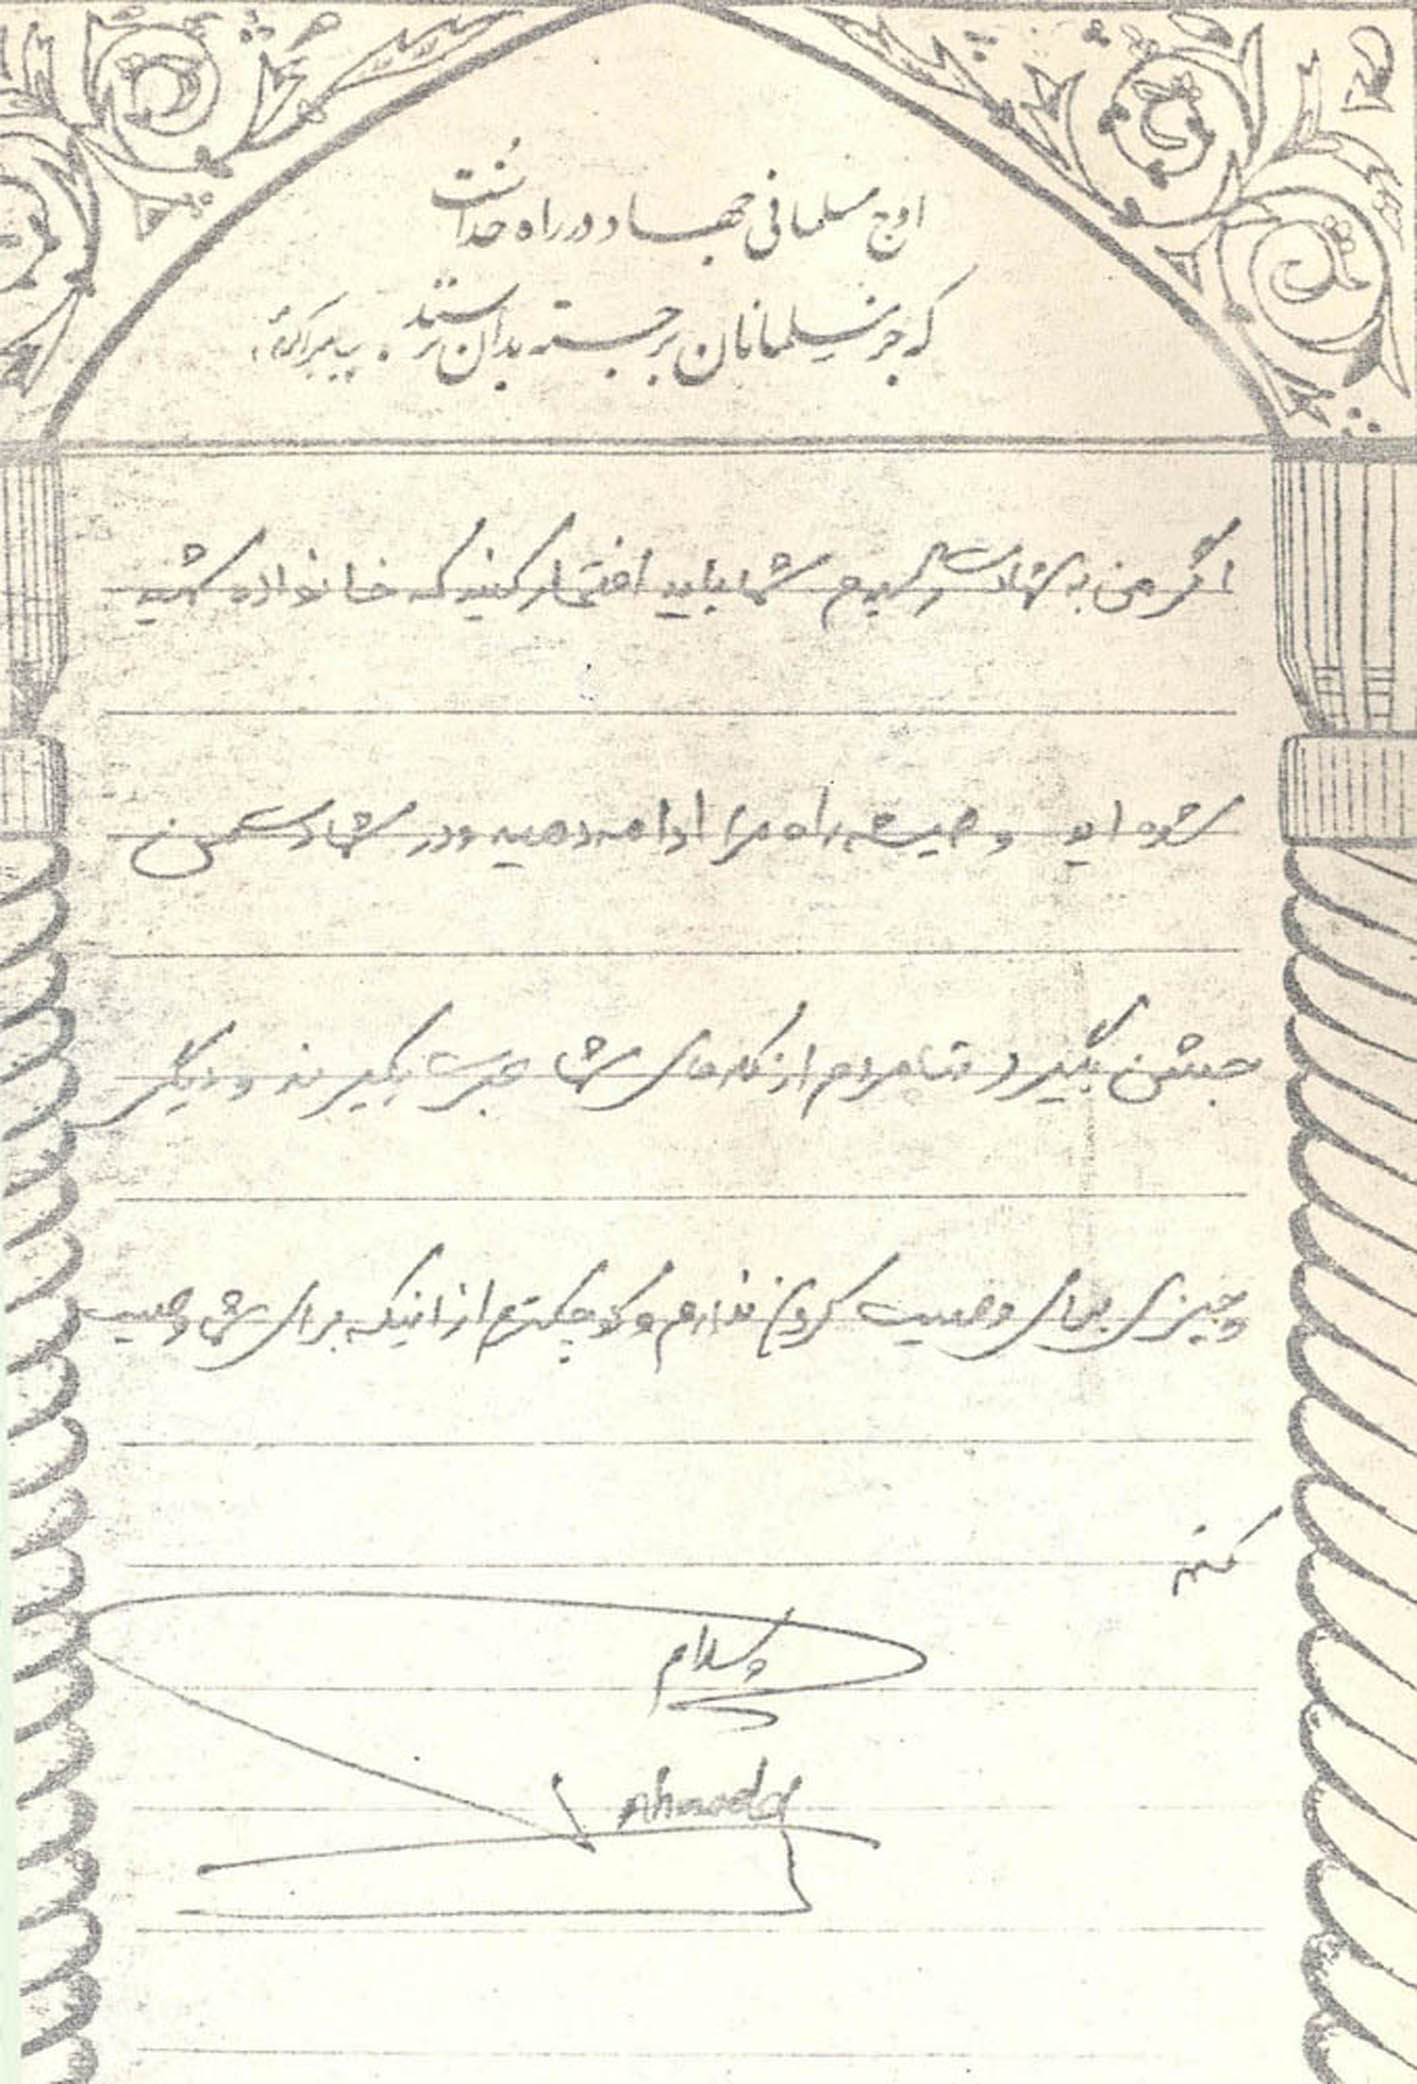 اوج مسلمانی جهاد در راه خداست
که جز مسلمانان برجسته بدان نرسند. پیامبر اکرم
اگر من به شهادت رسیدم شما باید افتخار کنید که خانواده شهید
شده اید و همیشه راه مرا ادامه دهید و در
جشن بگیرد تا مردم از کارهای شما عبرت بگیرند و دیگر
و چیزی برای وصیت کردن ندارم و کوچکترم از اینکه برای شما وصیت
کنم
وسلام